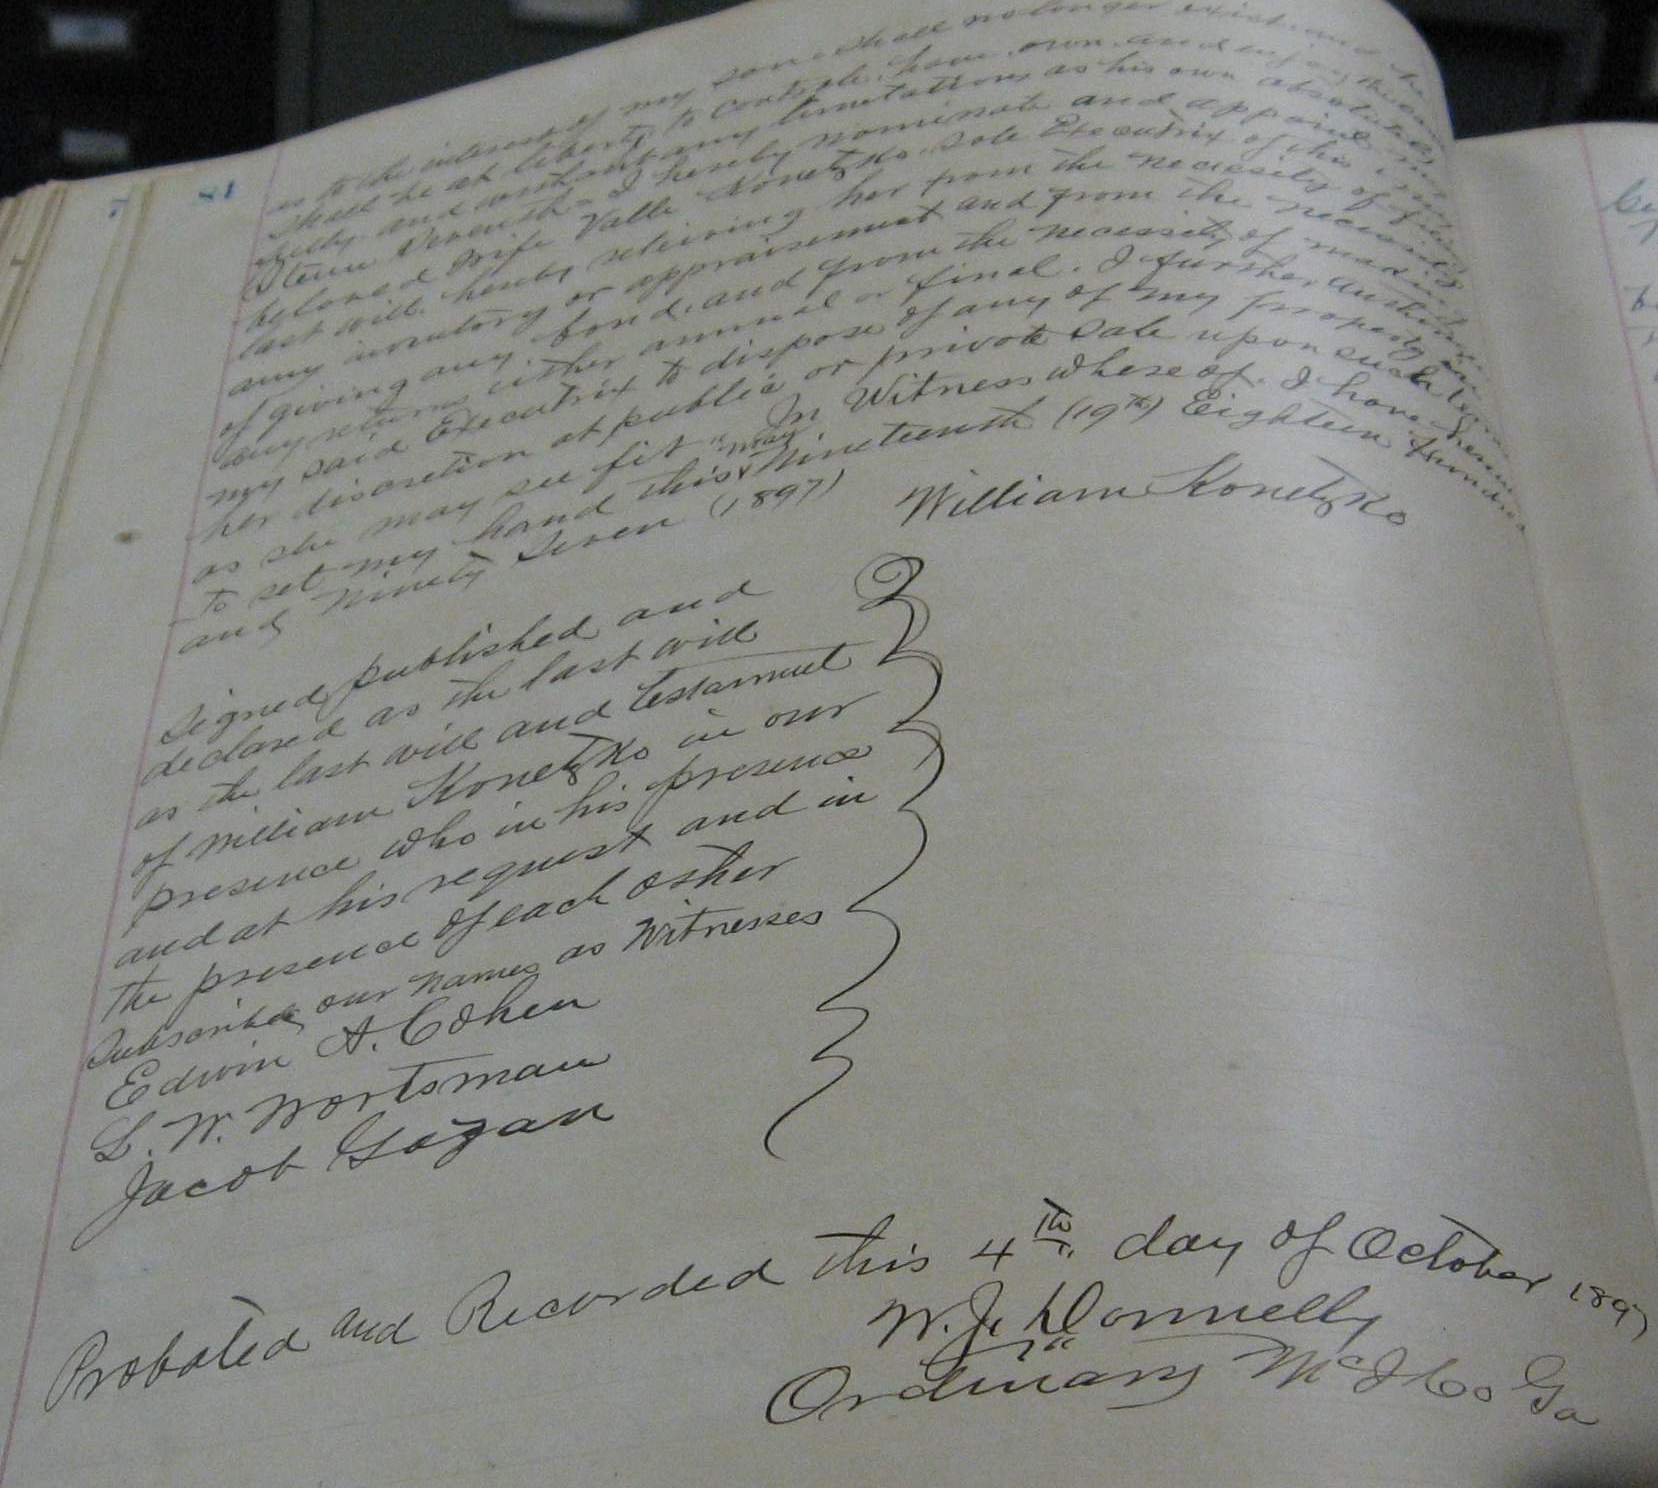 as to the interest of my son shall no longer exist and she
shall be at liberty to controle, have, own and enjoy the same
fully and without any limitations as his own absolutely
Item Seventh - I hereby nominate and appoint my
beloved Wife Valle Konetzko sole Executrix of this my
last will, hereby relieving her from the necessity of filing
any inventory or appraisement and from the necessity
of giving any bond, and from the necessity of making
any returns either annual or final. I further authorize
my said Executrix to dispose of any of my property in
her discretion at public or private sale upon such terms
as she may see fit. In Witness where of. I have hereunto
to set my hand this May Nineteenth (19th) Eighteen Hundred
and Ninety Seven (1897)
William Konetzko
Signed published and
declared as the last will
as the last will and testament
of William Konetzko in our
presence who in his presence
and at his request and in
the presence of each other
Subscribed our names as Witnesses
Edwin A. Cohen
L. W. Wortsman
Jacob Gazan
Probated and Recorded this 4th day of October 1897
W. J. Donnelly
Ordinary McI Co Ga